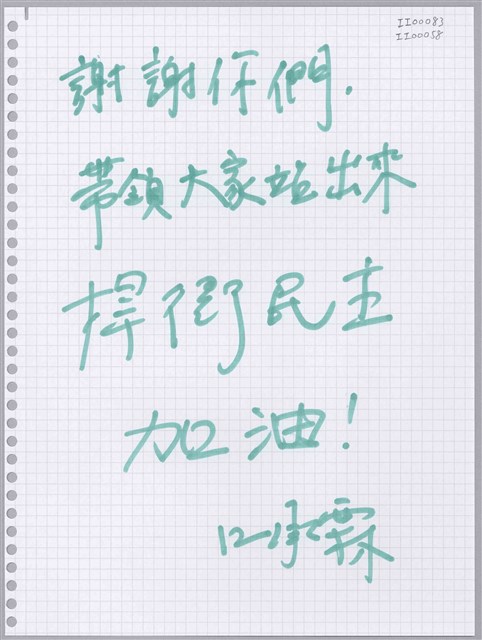 II00083
II00058
謝謝你們.
帶領大家站出來
捍衛民主
加油!
霖